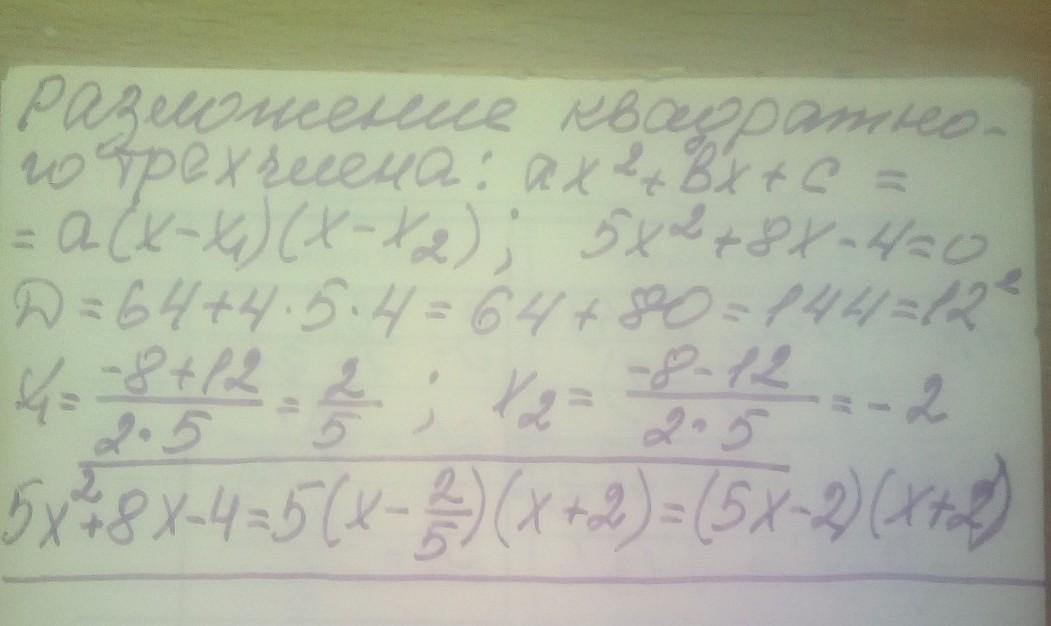 Разложение квадратно-
го трехчлена: ax²+вx+c =
= a(x-x₁)(x-x₂); 5x²+8x-4=0
D=64+4·5·4=64+80=144=12²
x₁= (-8+12)/(2·5) = 2/5 ; x₂= (-8-12)/(2·5) =-2
5x²+8x-4=5(x-2/5)(x+2)=(5x-2)(x+2)